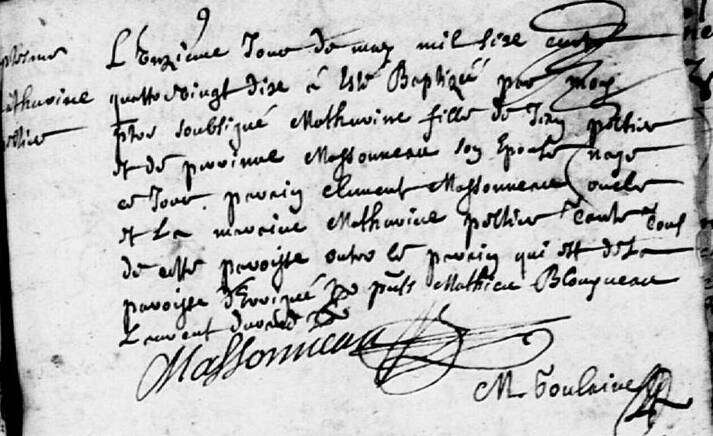 L'onziéme Jour de may mil sixe cents
quattrevingt dixe á esté Baptizé par moy
ptre soubsigné Mathurine fille de Jean peltier
et de perinne Massonneau son Epouse naye
ce Jour parain Clement Massonneau oncle
et la maraine Mathurine peltier tante tous
de cette paroisse outre le parain qui est de la
paroisse pnts Mathieu
Laurent
Massonneau
Mathurine